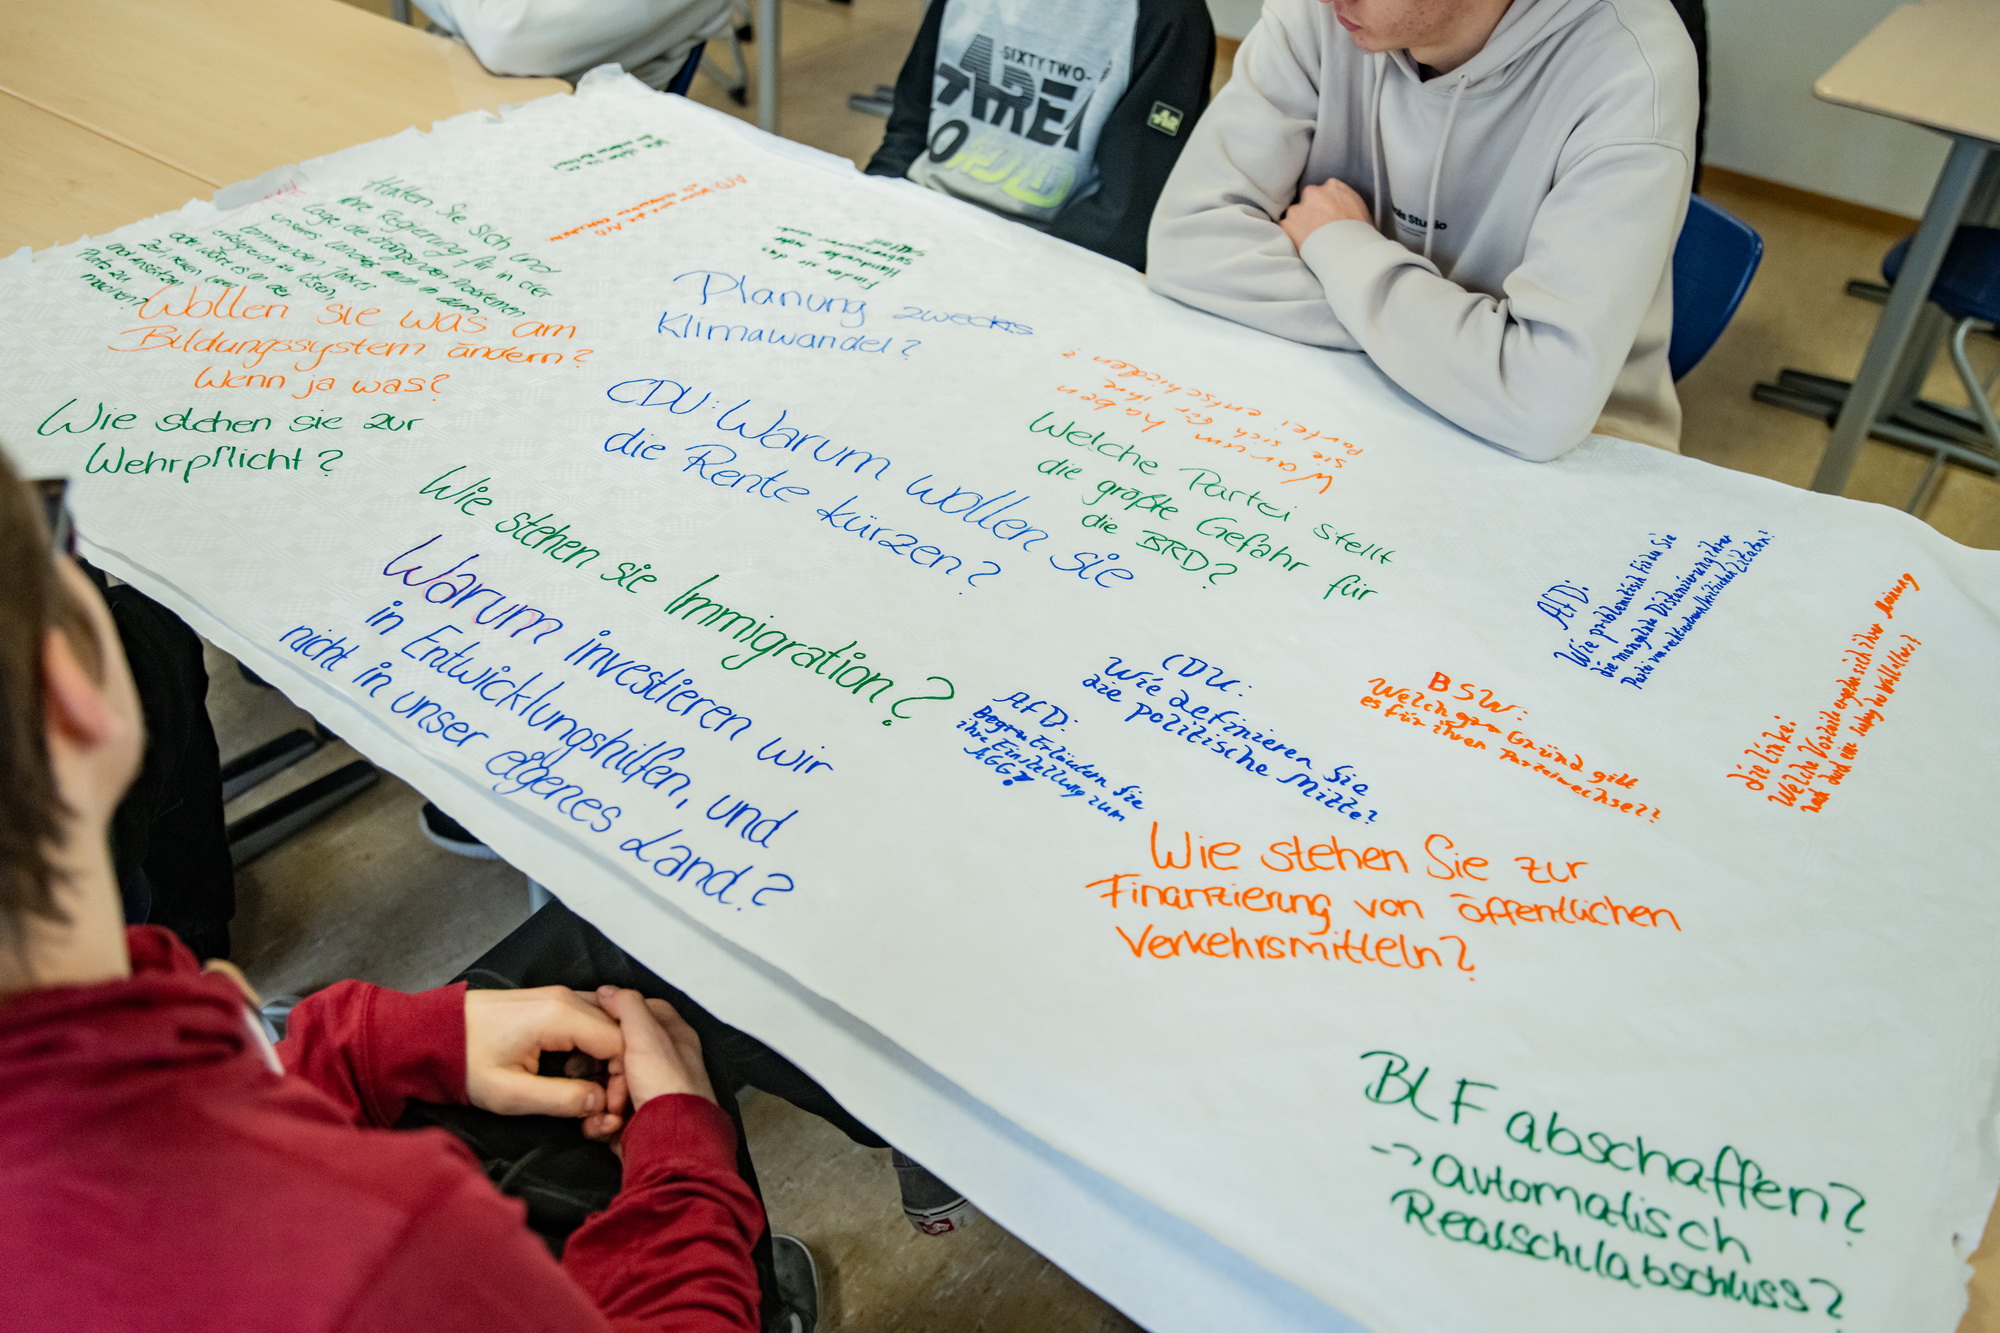 SIXTYTWO
Halten Sie sich und
ihre Regierung für in der
Lage die drängenden Probleme
unseres Landes auch in den
kommenden Jahren
erfolgreich zu lösen,
oder wäre es an der
Zeit, neuen
und Ansätzen
Platz zu
machen?
Wollen sie was am
Bildungssystem ändern?
Wenn ja was?
Wie stehen sie zur
Wehrpflicht?
Finden sie das
Handwerk
Planung zwecks
Klimawandel?
CDU: Warum wollen sie
die Rente kürzen?
Warum haben
sie sich für ihre
Partei entschieden?
Welche Partei stellt
die größte Gefahr für
die BRD?
Wie stehen sie Immigration?
Warum investieren wir
in Entwicklungshilfen, und
nicht in unser eigenes Land?
AfD:
Erläutern Sie
ihre Einstellung zum
AGG?
CDU:
Wie definieren Sie
die politische Mitte?
BSW:
Welchen Gründ gibt
es für ihren Parteiwechsel?
AfD:
Wie problematisch finden Sie
die mangelnde Distanzierung ihrer
Partei von
die Linke:
Welche Vorteile ergeben sich ihrer Meinung
nach
Wie stehen Sie zur
Finanzierung von öffentlichen
Verkehrsmitteln?
BLF abschaffen?
-> automatisch
Realschulabschluss?